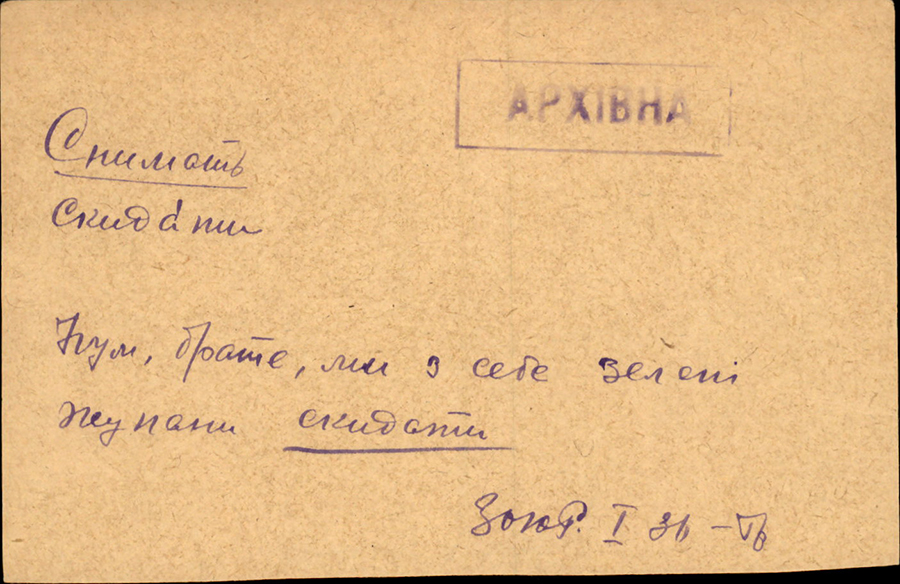 АРХІВНА
Снимать
Скида́ти
брате, ми з себе зелені
жупани скидати
ЗОЮР. I